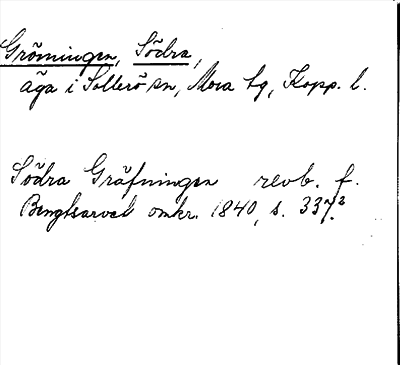 Gröningen, Södra,
äga i Sollerö sn, Mora tg, Kopp. l.
Södra Gräfningen revb. f.
Bengtsarvet omkr. 1840, s. 337.²